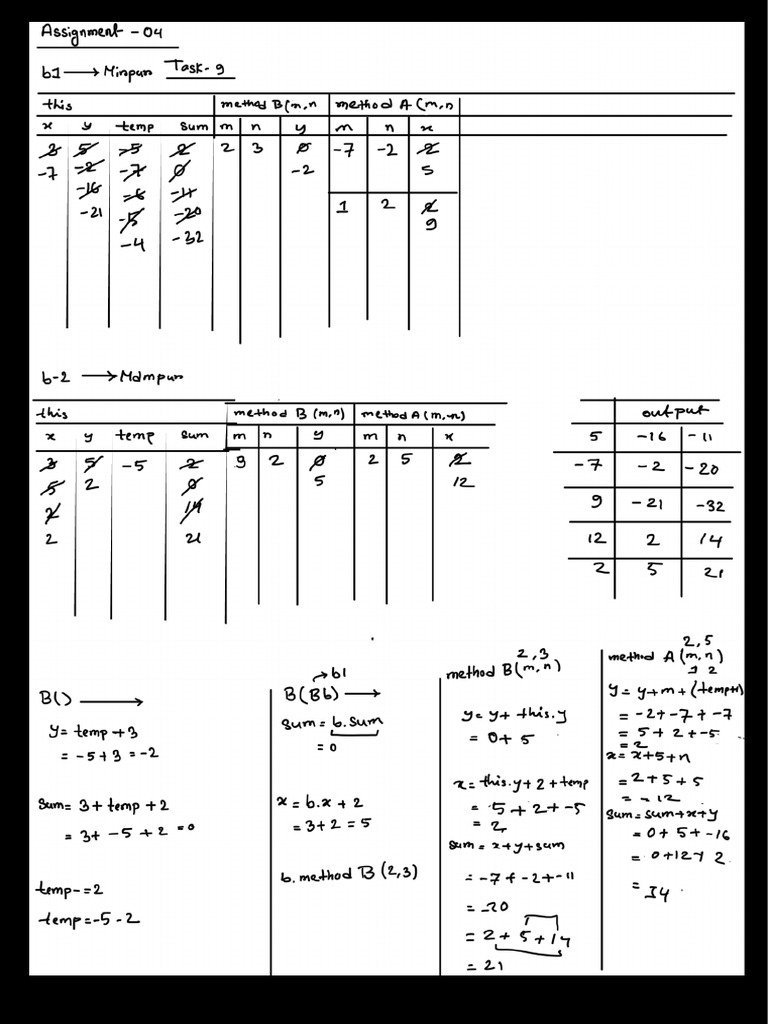 Assignment - 04
b1 → Minpun Task-9
this method B(m,n method A(m,n
x y temp sum m n y m n x
3 5 -5 2 2 3 0 -7 -2 2
-7 -2 -7 0 -2 5
-16 -6 -11
-21 -15 -20 1 2 2
-4 -32 9
b-2 → Mdmpun
this method B (m,n) method A(m,n)
x y temp sum m n y m n x
3 5 -5 2 9 2 0 2 5 2
5 2 0 5 12
2 14
2 21
output
5 -16 -11
-7 -2 -20
9 -21 -32
12 2 14
2 5 21
B() →
y = temp + 3
= -5+3 = -2
sum = 3 + temp + 2
= 3+ -5 + 2 = 0
temp-=2
temp=-5-2
→b1
B(Bb) →
sum = b.sum
= 0
x = b.x + 2
= 3+2 = 5
b. method B (2,3)
2,3
method B(m,n)
y = y+ this.y
= 0+ 5
x = this.y+2+temp
= 5+2+-5
= 2
sum = x+y+sum
= -7+-2+-11
= -20
= 2+ 5+14
= 21
2,5
method A (m,n)
1 2
y = y+m+(temp++)
= -2+-7+-7
= 5+2+-5
= 2
x = x+5+n
= 2+5+5
= 12
sum = sum+x+y
= 0+5+-16
= 0+12+2
= 14